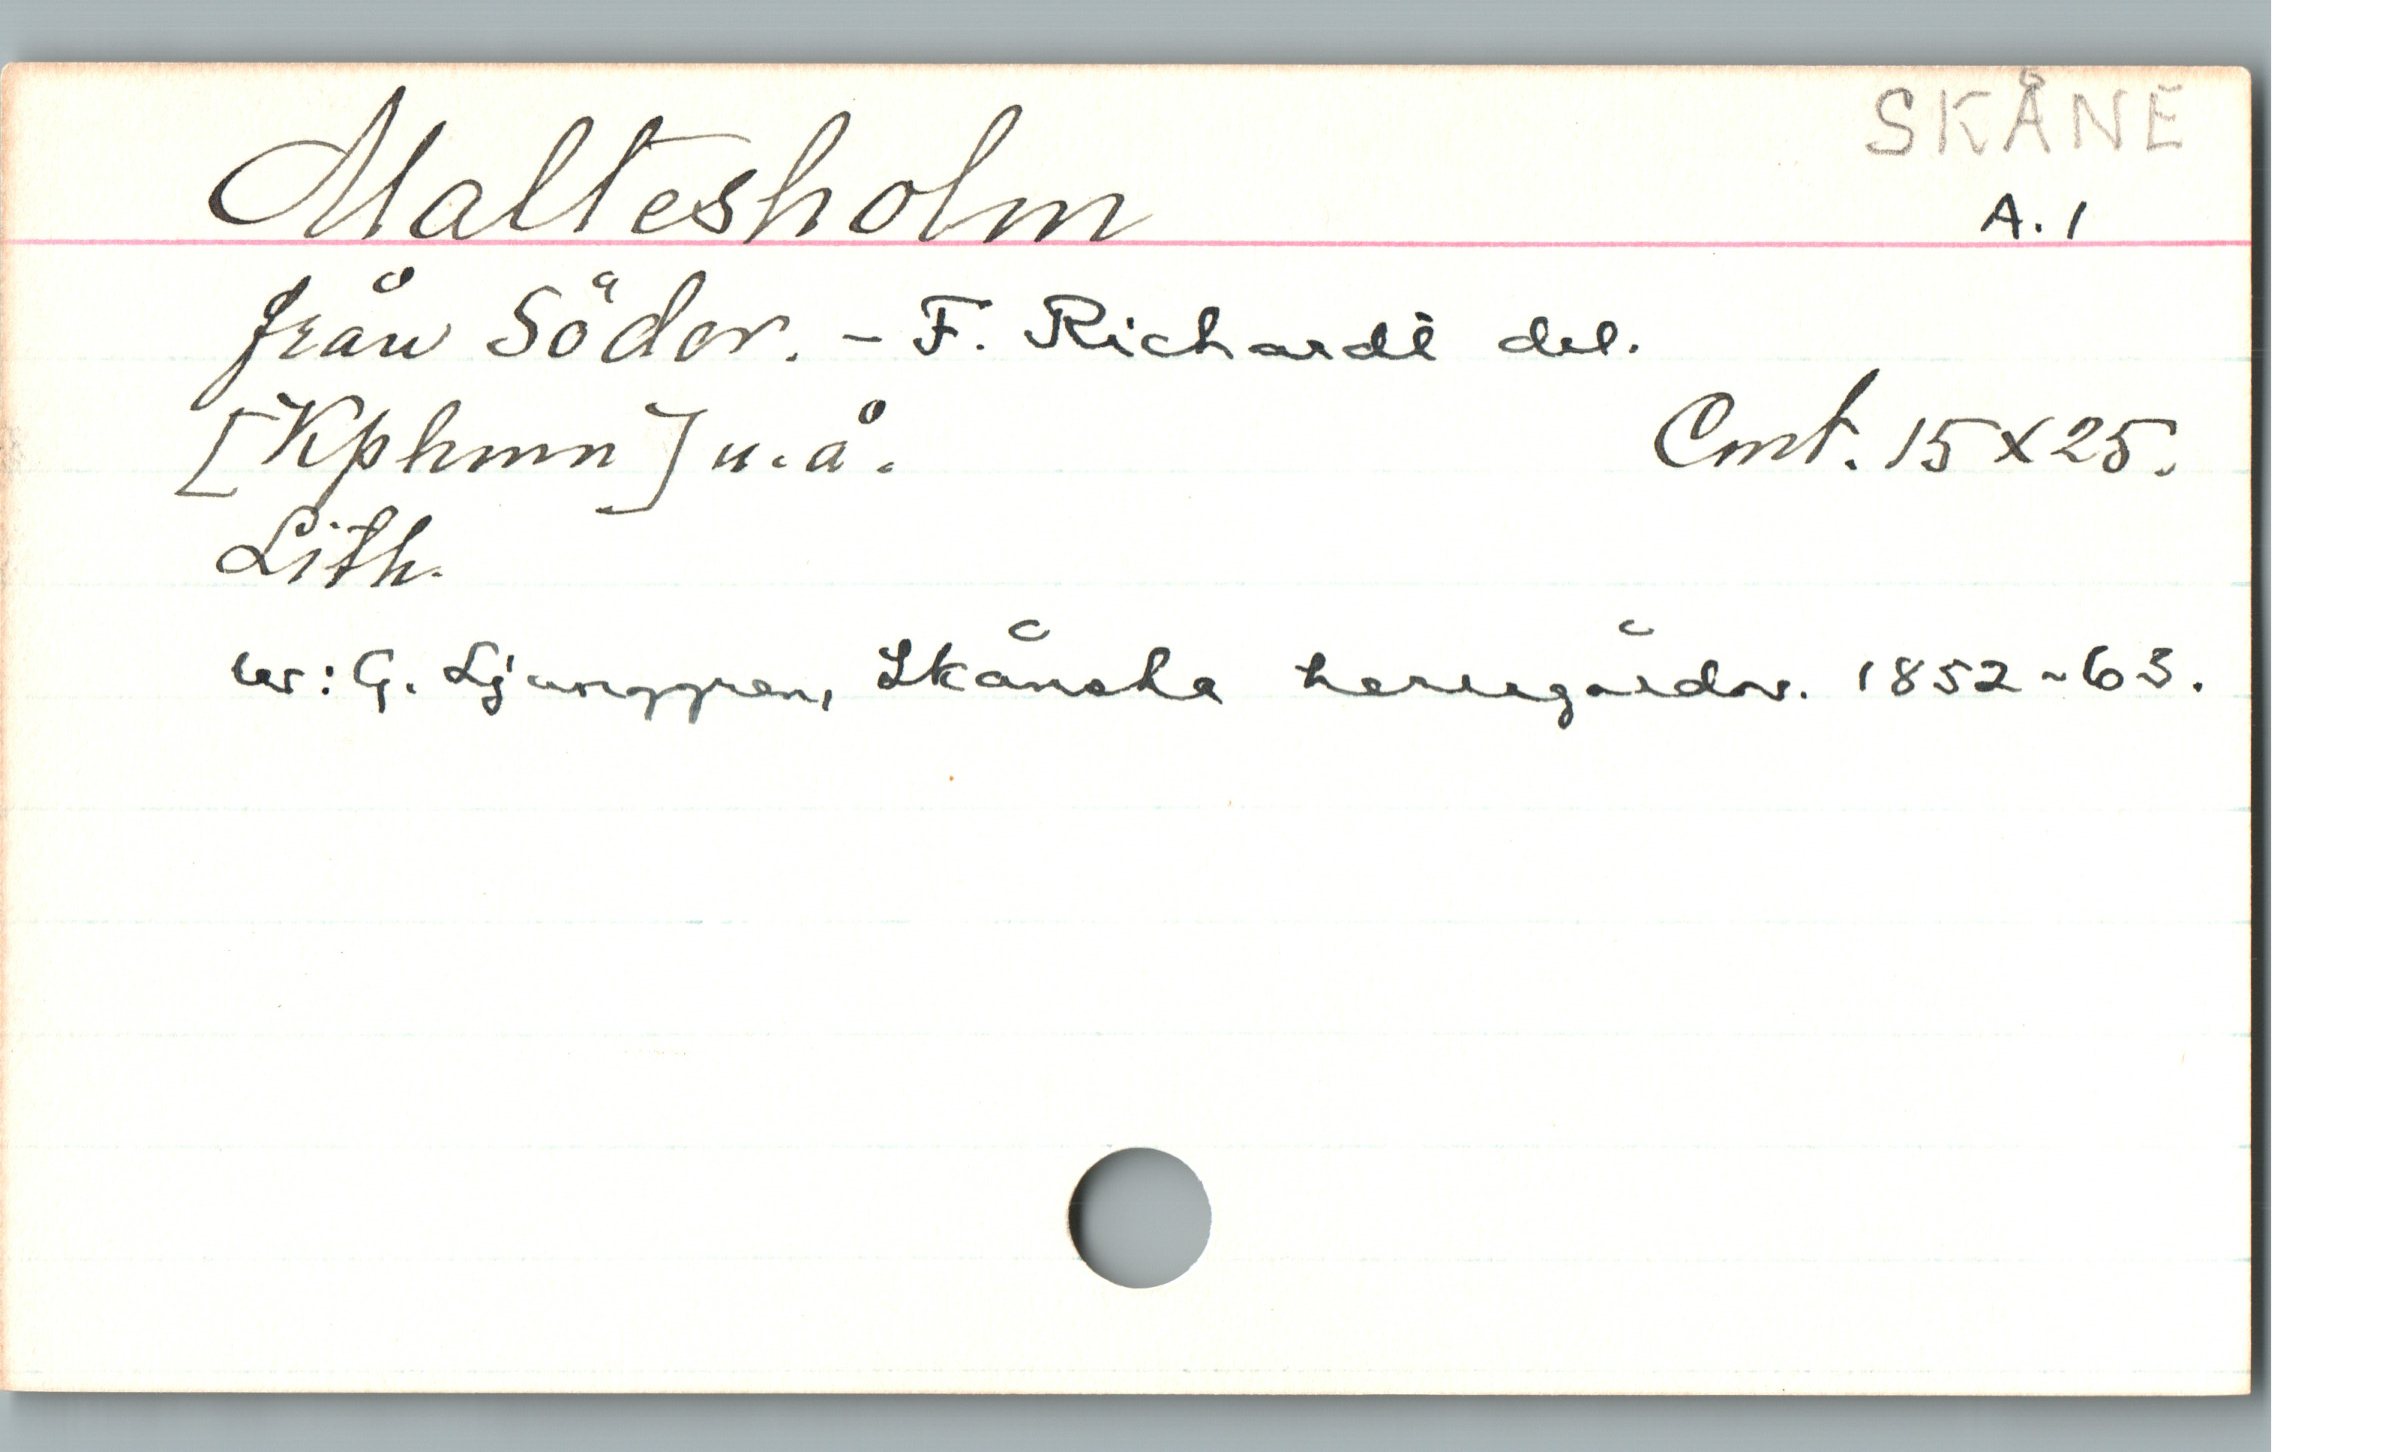 SKÅNE
Maltesholm A.1
från Söder. – F. Richardt del.
[Kphmn] u.å. Cmt. 15x25.
Lith.
ur: G. Ljunggren, Skånska herregårdar. 1852-63.